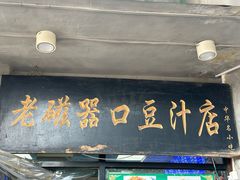 老磁器口豆汁店
中华名小吃